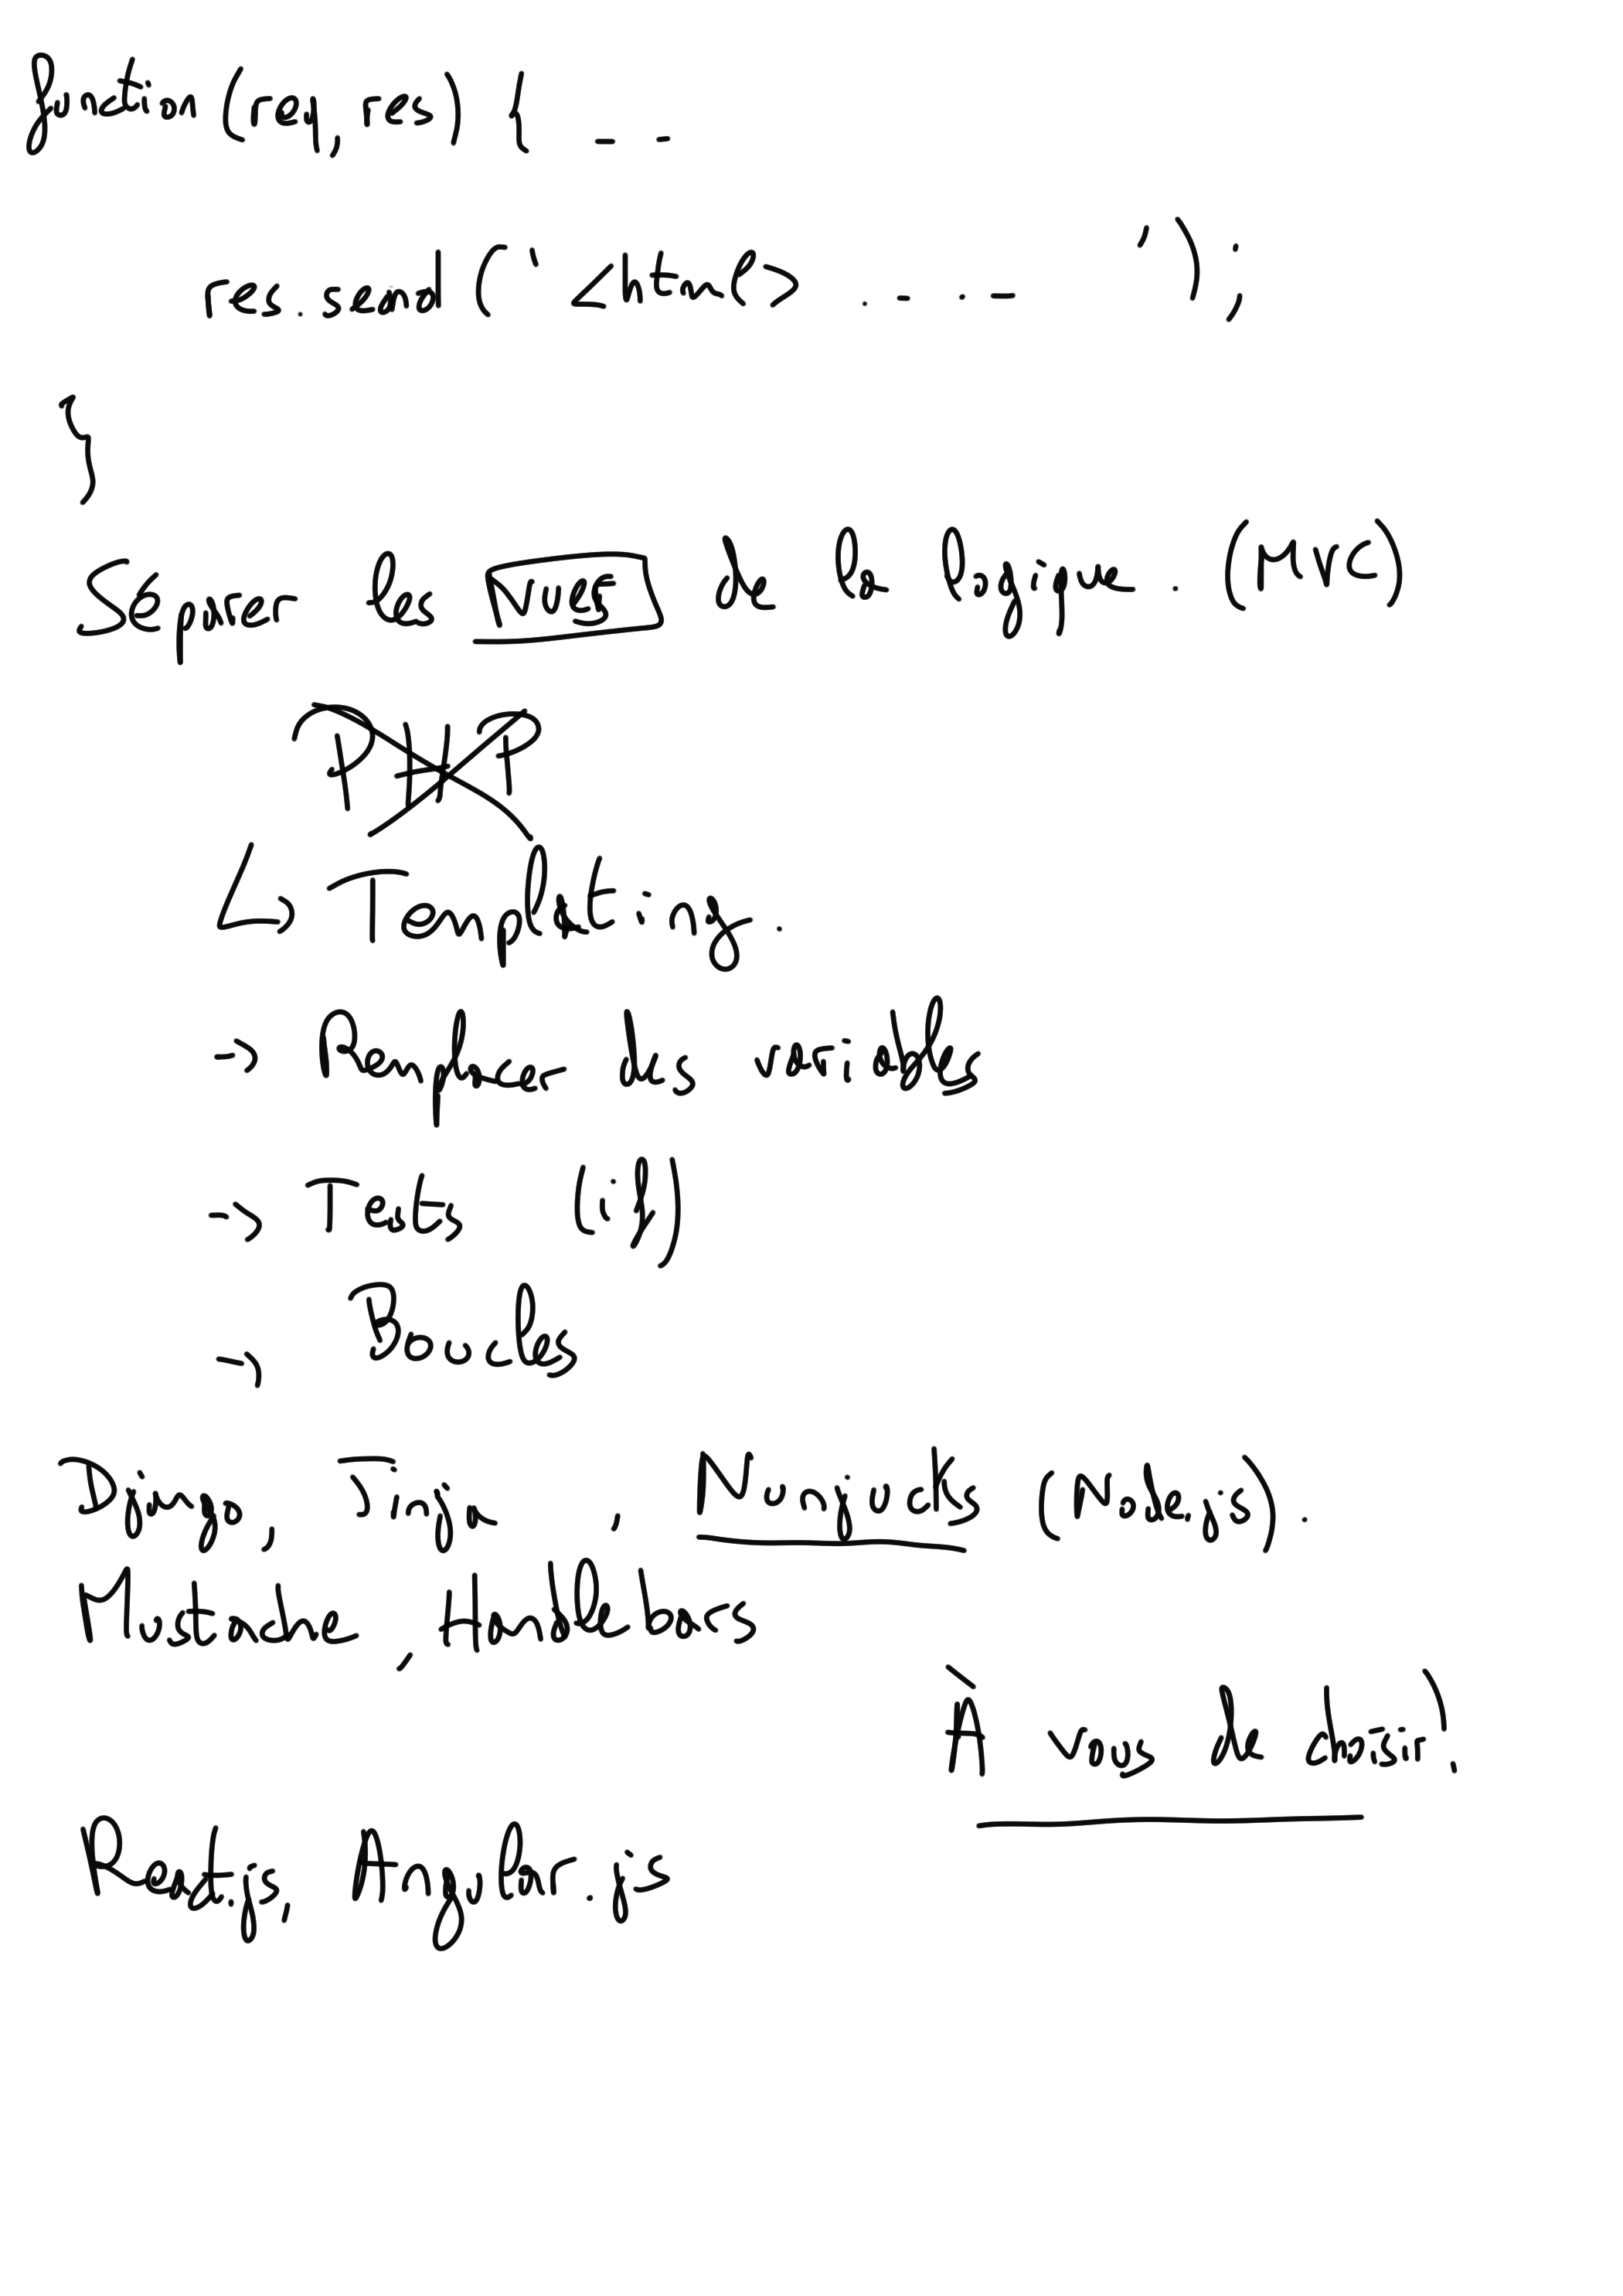 function (req, res) { - -
res.send (' <html> . - - . - ');
}
Séparer les vues de la logique. (MVC)
PHP
↳ Templating.
-> Remplacer des variables
-> Tests (if)
-> Boucles
Django, Jinja, Nunjucks (Node.js).
Mustache, Handlebars
À vous de choisir!
React.js, Angular.js